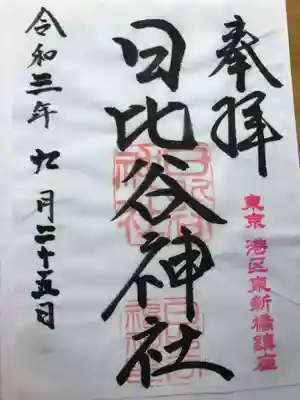 奉拝
東京 港区東新橋鎮座
日比谷神社
令和三年 九月二十五日